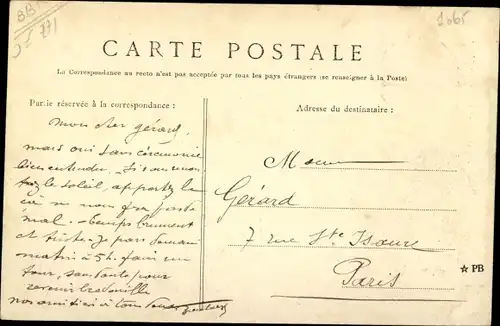 BB
771
2065
CARTE POSTALE
La Correspondance au recto n'est pas acceptée par tous les pays étrangers (se renseigner à la Poste)
Partie réservée à la correspondance :
Adresse du destinataire :
Mon cher Gérard,
mais oui sans cérémonie
bien entendu. Si vous
le soleil, apportez le
ça ne nous fera pas
mal. temps brumeux
et triste. Je pars demain
matin à 5h. faire un
tour, sans doute pour
revenir
nos amitiés à tous deux
Gérard
7 rue Ste Isaure
Paris
★ PB